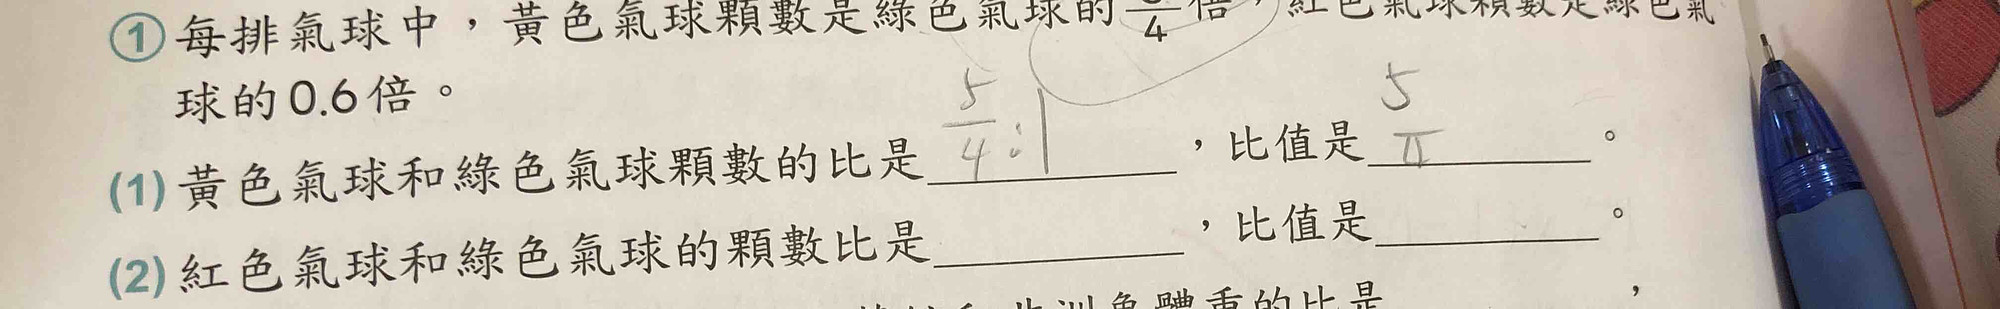 ① 每排氣球中，黃色氣球顆數是綠色氣球的 /4 倍，紅色氣球顆數是綠色氣
球的0.6倍。
(1) 黃色氣球和綠色氣球顆數的比是 5/4:1 ，比值是 5 。
(2) 紅色氣球和綠色氣球的顆數比是＿＿＿＿，比值是＿＿＿＿。
非洲象體重的比是 ，